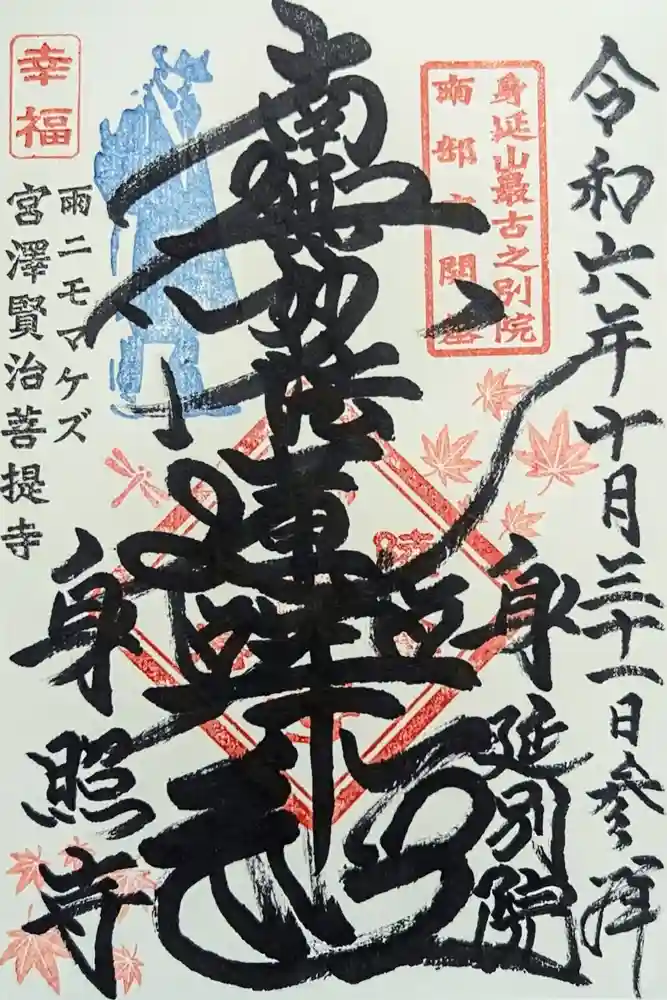 令和六年十月三十一日参拝
身延山最古之別院
南部
身延別院
南無妙法蓮華経
幸福
雨ニモマケズ
宮澤賢治菩提寺
身照寺